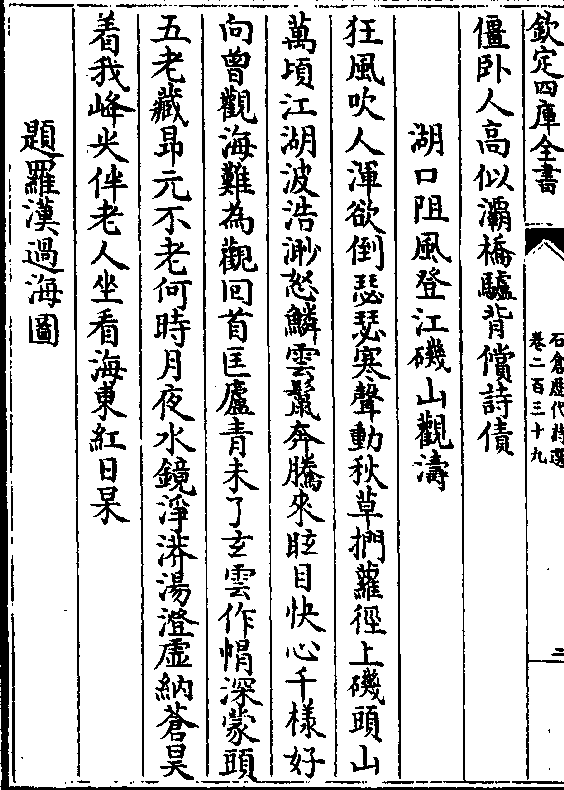 欽定四庫全書
石倉歷代詩選
卷二百三十九
二
僵卧人高似灞橋驢背償詩債
湖口阻風登江磯山觀濤
狂風吹人渾欲倒瑟瑟寒聲動秋草捫蘿徑上磯頭山
萬頃江湖波浩渺怒鱗雲鬛奔騰來眩目快心千様好
向曾觀海難為觀回首匡廬青未了玄雲作㡓深蒙頭
五老藏昻元不老何時月夜水鏡淨漭湯澄虛納蒼昊
着我峰尖伴老人坐看海東紅日杲
題羅漢過海圖